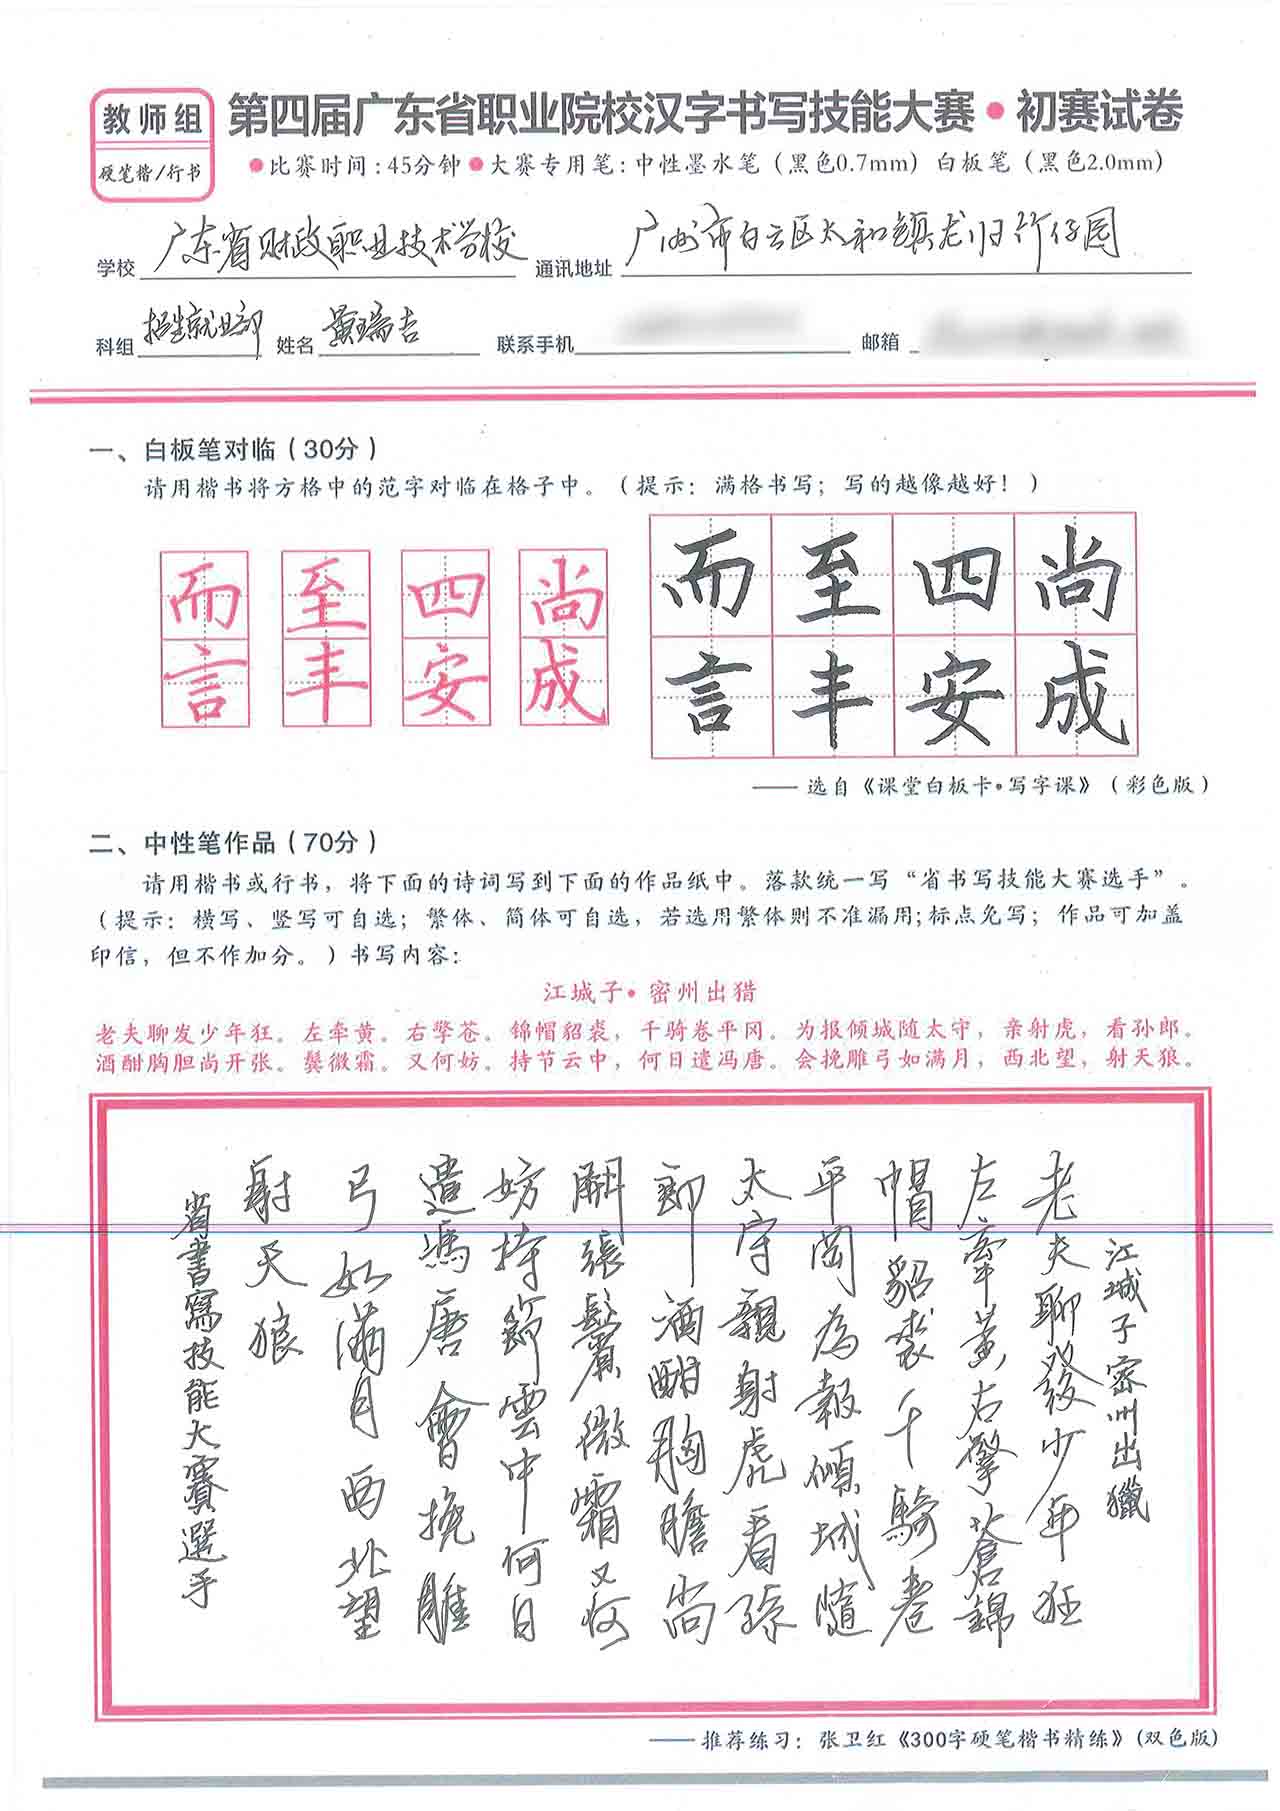 教师组
硬笔楷/行书
第四届广东省职业院校汉字书写技能大赛•初赛试卷
●比赛时间:45分钟●大赛专用笔:中性墨水笔（黑色0.7mm）白板笔（黑色2.0mm）
学校 广东省财政职业技术学校 通讯地址 广州市白云区太和镇龙归竹仔园
科组 招生就业部 姓名 黄瑞吉 联系手机 邮箱
一、白板笔对临（30分）
请用楷书将方格中的范字对临在格子中。（提示：满格书写；写的越像越好！）
而 至 四 尚
言 丰 安 成
而 至 四 尚
言 丰 安 成
——选自《课堂白板卡•写字课》（彩色版）
二、中性笔作品（70分）
请用楷书或行书，将下面的诗词写到下面的作品纸中。落款统一写“省书写技能大赛选手”。
（提示：横写、竖写可自选；繁体、简体可自选，若选用繁体则不准漏用;标点免写；作品可加盖
印信，但不作加分。）书写内容：
江城子•密州出猎
老夫聊发少年狂。左牵黄。右擎苍。锦帽貂裘，千骑卷平冈。为报倾城随太守，亲射虎，看孙郎。
酒酣胸胆尚开张。鬓微霜。又何妨。持节云中，何日遣冯唐。会挽雕弓如满月，西北望，射天狼。
江城子密州出獵
老夫聊發少年狂
左牽黃右擎蒼錦
帽貂裘千騎卷
平岡為報傾城隨
太守親射虎看孫
郎酒酣胸膽尚
開張鬢微霜又何
妨持節雲中何日
遣馮唐會挽雕
弓如滿月西北望
射天狼
省書寫技能大賽選手
——推荐练习：张卫红《300字硬笔楷书精练》(双色版)